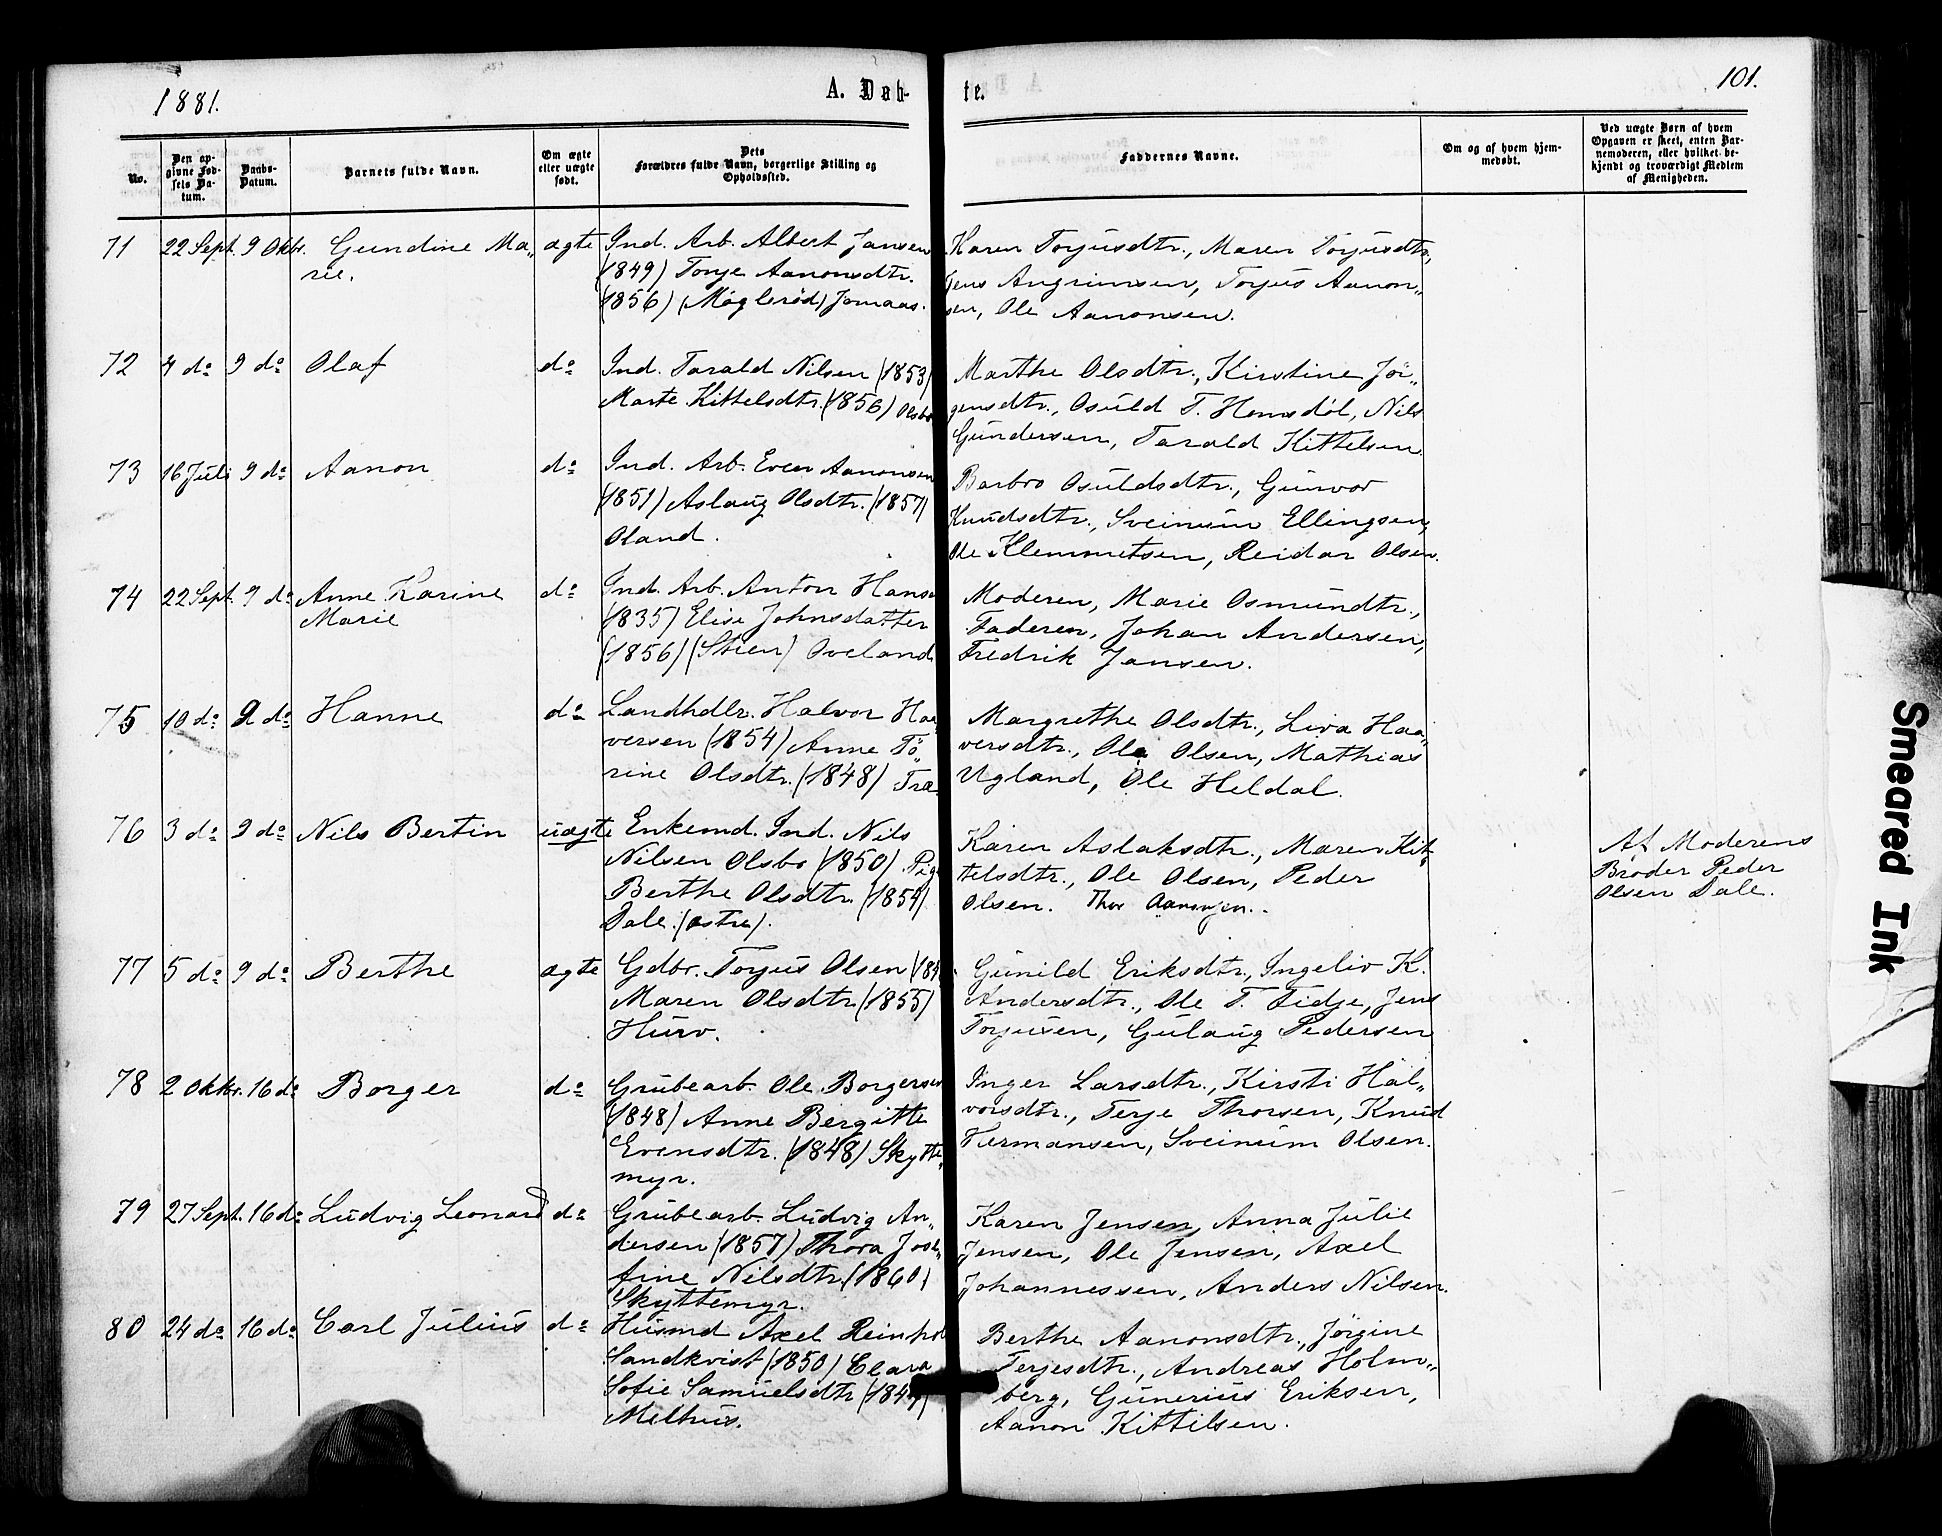 1881.
A. Døb-
te.
101.
No.
Den op-
givne Fød-
sels Da-
tum.
Daabs-
Datum.
Barnets fulde Navn.
Om ægte
eller uægte
født.
Dets
Forældres fulde Navn, borgerlige Stilling og
Opholdssted.
Faddernes Navne.
Om og af hvem hjem-
medøbt.
Ved uægte Børn af hvem
Opgaven er skeet, enten Bar-
nemoderen, eller hvilket be-
kjendt og troværdigt Medlem
af Menigheden.
71 22 Sept. 9 Oktbr. Gundine Ma„
rie.
ægte
Ind. Arb. Albert Jansen
(1849) Tonje Aanonsdtr.
(1856) (Møglerød) Jomaas.
Karen Torjusdtr., Maren Torjusdtr.,
Jens Angrimsen, Torjus Aanon„
sen, Ole Aanonsen.
72 4 do 9 do Olaf do
Ind. Tarald Nilsen (1853)
Marte Kittelsdtr. (1856) Olsbo
Marthe Olsdtr., Kirstine Jør„
gensdtr., Osuld T. Homdøl, Nils
Gundersen, Tarald Kittelsen
73 16 Juli 9 do Aanon do
Ind. Arb. Even Aanonsen
(1851) Aslaug Olsdtr. (1857)
Oland.
Barbro Osuldsdtr., Gunvor
Knudsdtr., Sveinum Ellingsen,
Ole Klemmetsen, Reidar Olsen.
74 22 Sept. 9 do Anne Karine
Marie
do
Ind. Arb. Anton Hans
(1835) Elise Johnsdatter
(1856) (Stien) Oveland
Moderen, Marie Osmundtr.,
Faderen, Johan Andersen,
Fredrik Jansen.
75 10 do 9 do Hanne do
Landhdlr. Halvor Hal
versen (1854) Anne To„
rine Olsdtr. (1848) Træ
Margrethe Olsdtr., Liva Haa„
versdtr., Ole Olsen, Mathias
Ugland, Ole Heldal.
76 3 do 9 do Nils Bertin uægte
Enkemd. Ind. Nils
Nilsen Olsbo (1850) Pige
Berthe Olsdtr. (1854)
Dale (østre).
Karen Aslaksdtr., Maren Kit„
telsdtr., Ole Olsen, Peder
Olsen. Thor Aanonsen.
Af Moderens
Broder Peder
Olsen Dale.
77 5 do 9 do Berthe ægte
Gdbr. Torjus Olsen (184
Maren Olsdtr. (1855)
Hurv.
Gunild Eriksdtr., Ingeliv K.
Andersdtr., Ole T. Tidje, Jens
Torjusen, Gulaug Pedersen
78 2 Oktbr. 16 do Borger do
Grubearb. Ole Borgersen
(1848) Anne Bergitte
Evensdtr. (1848) Skytte„
myr.
Inger Larsdtr., Kirsti Hal„
vorsdtr., Terje Thorsen, Knud
Hermansen, Sveinum Olsen.
79 27 Sept. 16 do Ludvig Leonard do
Grubearb. Ludvig An„
dersen (1857) Thora Jose„
fine Nilsdtr. (1860)
Skyttemyr.
Karen Jensen, Anna Julie
Jensen, Ole Jensen, Axel
Johannessen, Anders Nilsen.
80 24 do 16 do Carl Julius do
Husmd Axel Reinhol
Sandkvist (1850) Clara
Sofie Samuelsdtr (184
Molhus.
Berthe Aanonsdtr., Jørgine
Terjesdtr., Andreas Holm„
berg, Gunerius Eriksen,
Aanon Kittilsen.
Smeared Ink